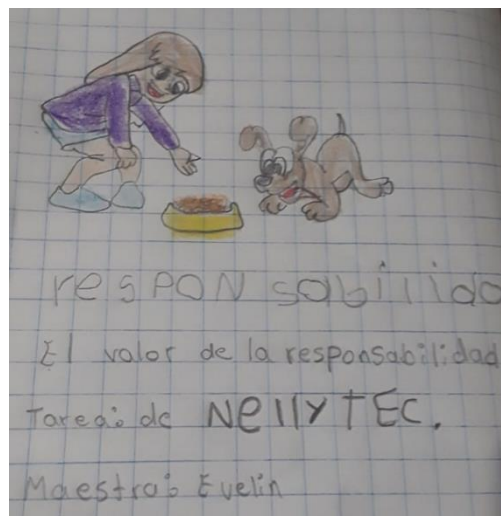 resPON sabilida
El valor de la responsabilidad
Tarea: de Nelly TEC.
Maestra: Evelin